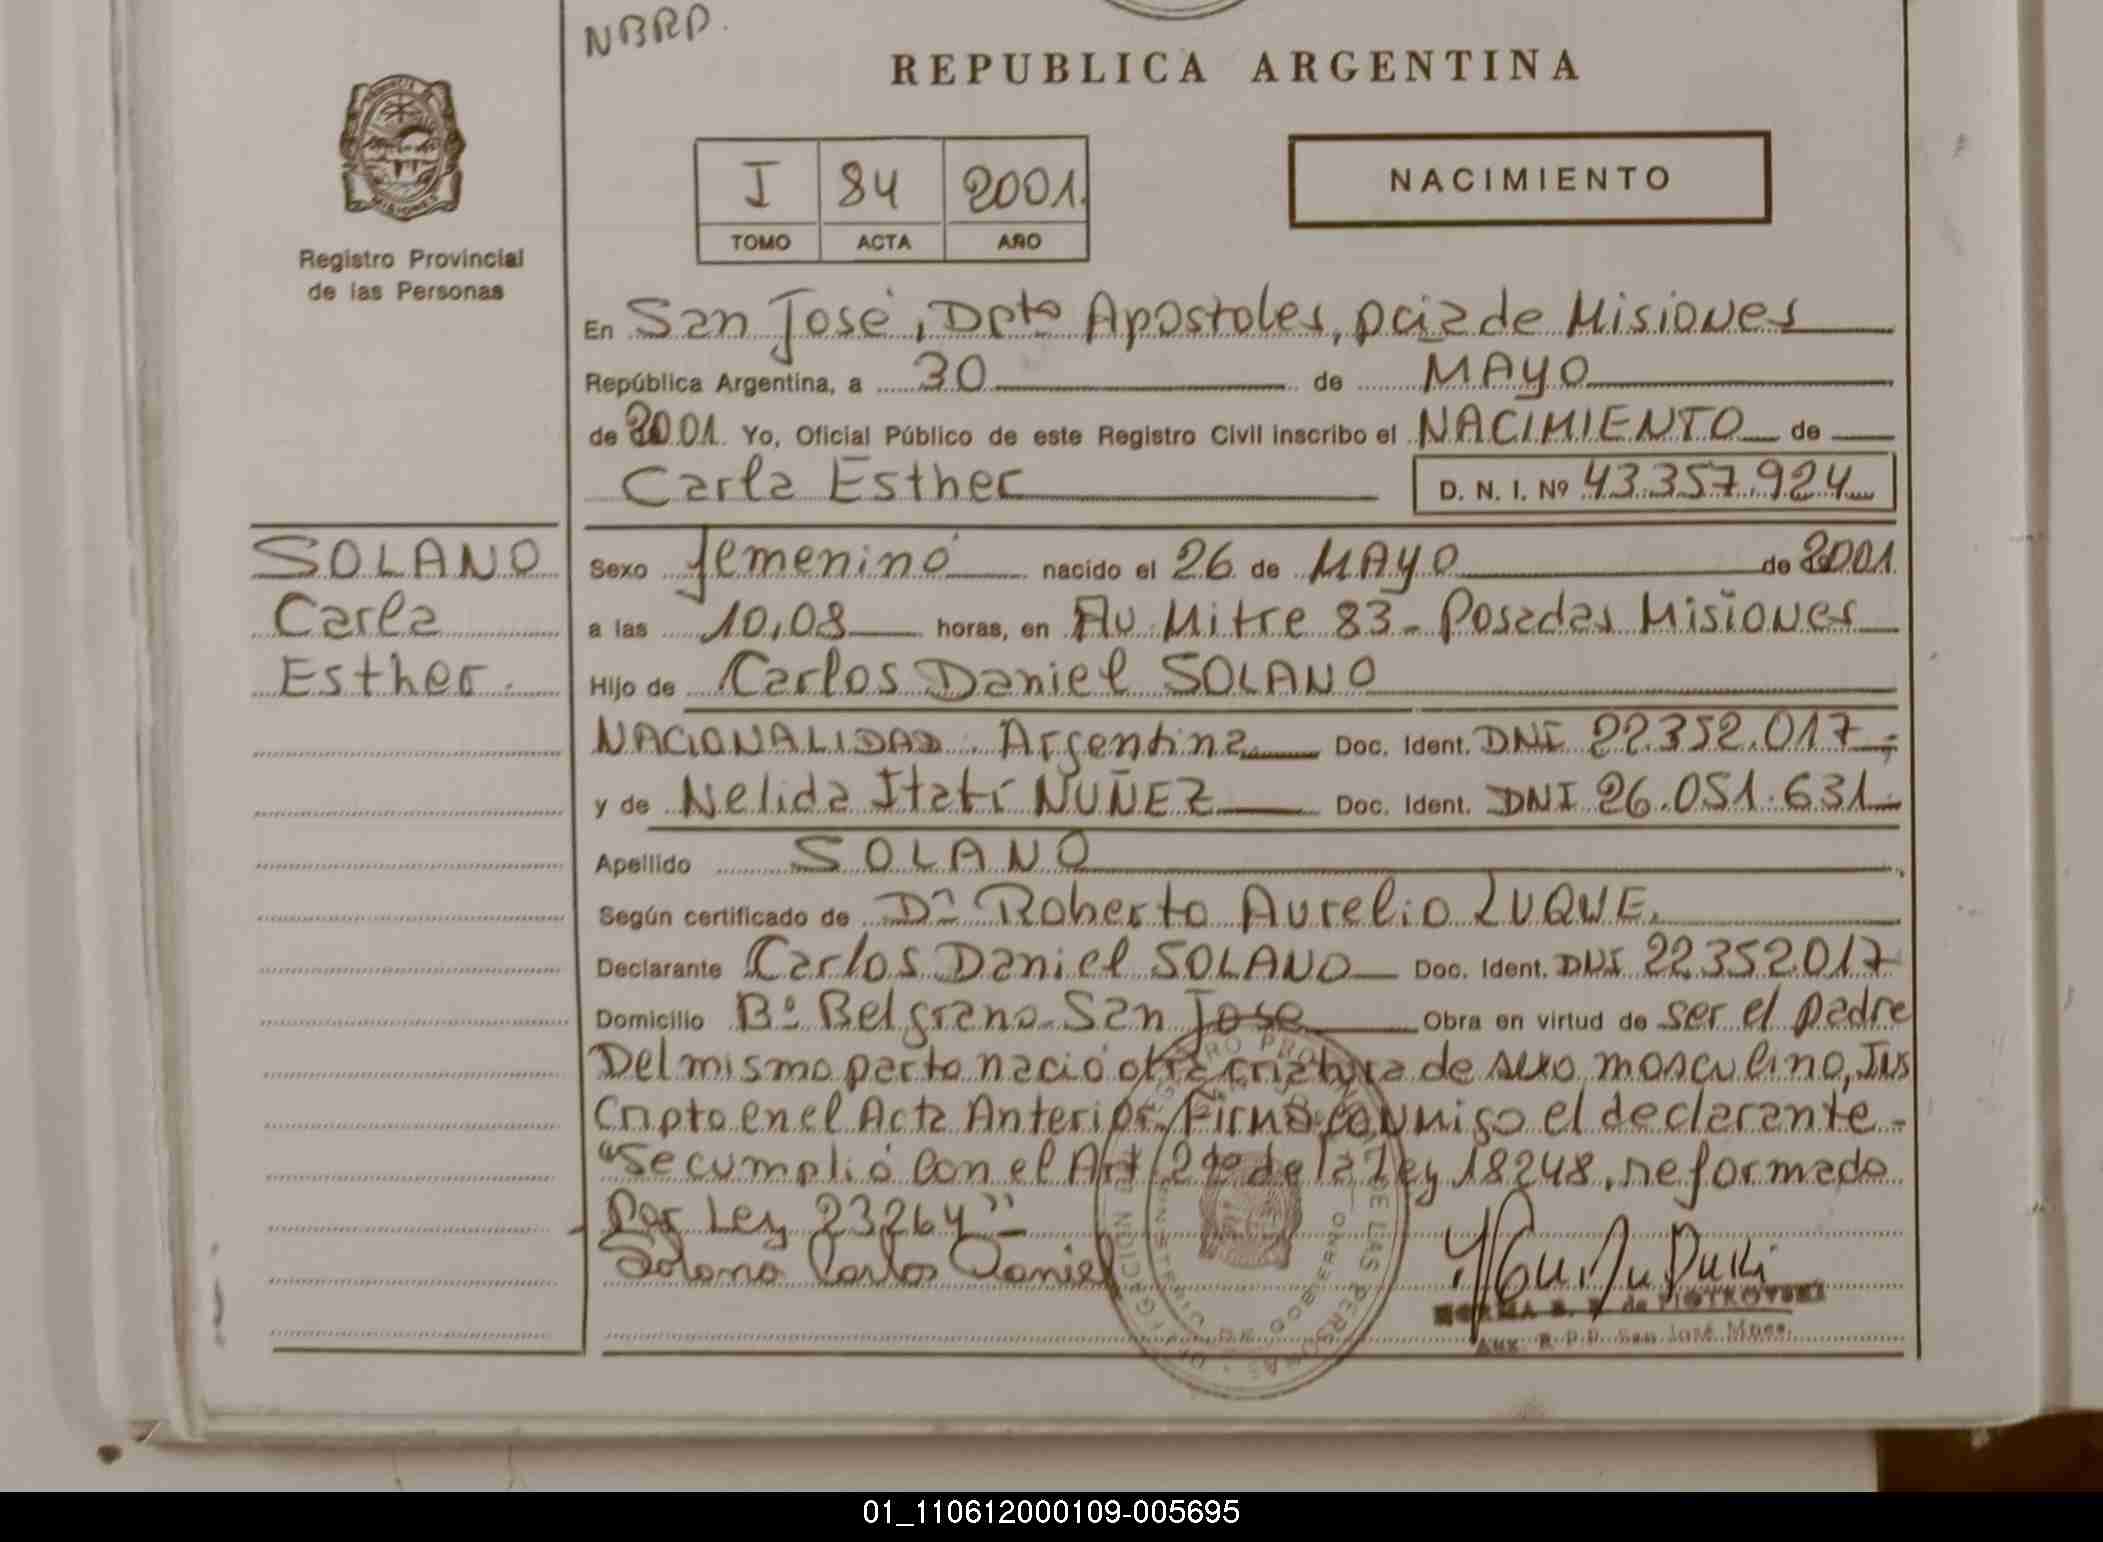 NBRP.
REPUBLICA ARGENTINA
MISIONES
Registro Provincial
de las Personas
I 84 2001.
TOMO ACTA AÑO
NACIMIENTO
En San José, Dpto Apostoles, pcia de Misiones
República Argentina, a 30 de MAYO
de 2001. Yo, Oficial Público de este Registro Civil inscribo el NACIMIENTO de
Carla Esther D. N. I. Nº 43.357.924
SOLANO
Carla
Esther.
Sexo femenino nacido el 26 de MAYO de 2001.
a las 10,08 horas, en Av. Mitre 83 - Posadas Misiones
Hijo de Carlos Daniel SOLANO
NACIONALIDAD Argentina Doc. Ident. DNI 22.352.017-;
y de Nelida Itatí NUÑEZ Doc. Ident. DNI 26.051.631-
Apellido SOLANO
Según certificado de Dr Roberto Aurelio LUQUE.
Declarante Carlos Daniel SOLANO Doc. Ident. DNI 22352017
Domicilio Bº Belgrano-San José Obra en virtud de ser el padre
Del mismo parto nació otra criatura de sexo masculino, Ins
cripto en el Acta Anterior, Firma conmigo el declarante -
"Se cumplió con el Art 2do de la Ley 18248, reformado
Por Ley 23264"-
Solano Carlos Daniel
NORMA B. de PIOTROVSKI
Aux. R.P.P. San José Mnes.
01_110612000109-005695